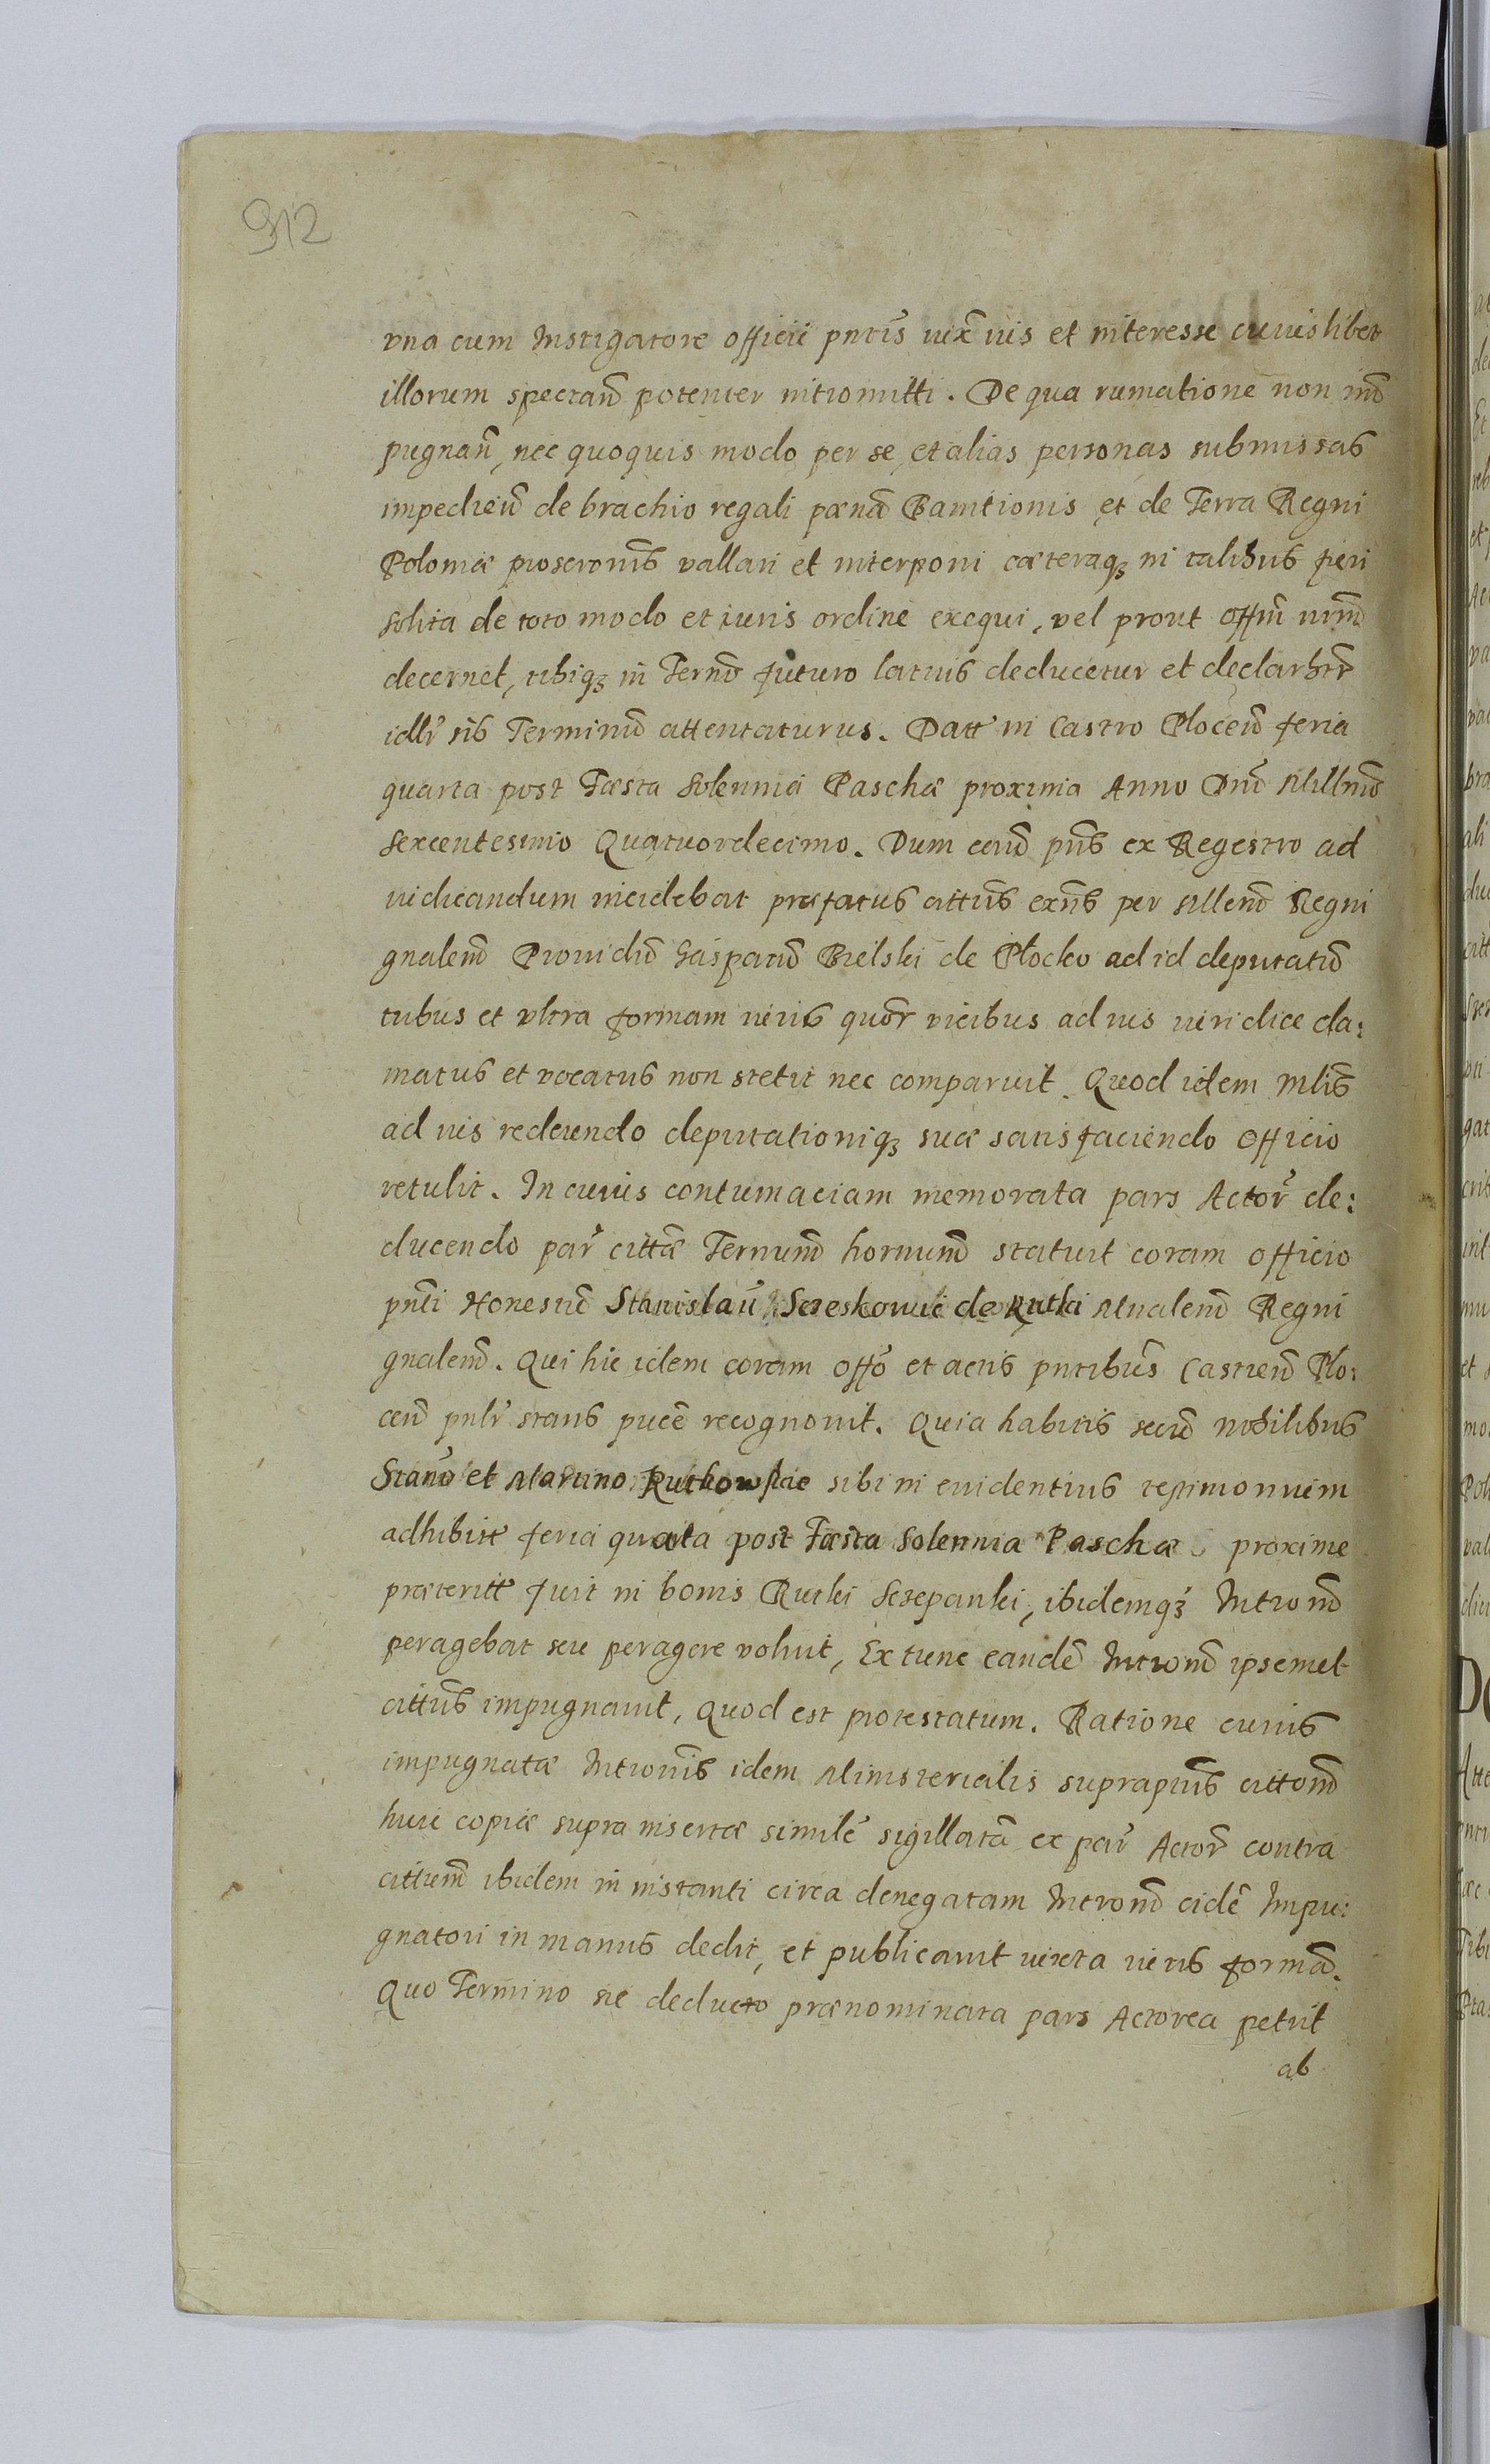 912
vna cum Instigatore officii pntis iux ius et interesse cuiuslibet
illorum spectan potenter intromitti. De qua rumatione non im
pugnan, nec quoquis modo per se, et alias personas submissas
impedien de brachio regali pœna Banitionis et de Terra Regni
Poloniæ proscronis vallari et interponi cæteraqꝫ in talibus fieri
solita de toto modo et iuris ordine exequi, vel prout offm nrm
decernet, tibiqꝫ in Termo futuro latius deducetur et declarbtr
idlr sis Terminu attentaturus. Datt in Castro Plocen feria
quarta post Fæsta Solennia Paschæ proxima Anno Dni Millmo
Sexcentesimo Quatuordecimo. Dum eaid pns ex Regestro ad
iudicandum incidebat præfatus cittus exns per Millem Regni
gnalem Prouidu Gasparu Bielski de Plocko ad id deputatu
tribus et vltra formam iuris quor vicibus ad ius iuridice cla:
matus et vocatus non stetit nec comparuit. Quod idem Mlis
ad ius redeundo deputationiqꝫ suæ satisfaciendo Officio
retulit. In cuius contumaciam memorata pars Actor de:
ducendo par cittæ Ternum hornum statuit coram officio
pnti Honestu Stanislau Szeskowic de Rutki Mnalem Regni
gnalem. Qui hic idem coram offo et actis pntibus Castren Plo:
cen pnlr stans puce recognouit. Quia habitis secu nobilibus
Stano et Martino Rutkowskie sibi in euidentius testimonium
adhibitt feria quarta post Fæsta Solennia Paschæ proxime
præteritt fuit in bonis Rutki Sczepanki, ibidemqꝫ Introm
peragebat seu peragere voluit, Ex tunc eande Introm ipsemet
cittus impugnauit, Quod est protestatum. Ratione cuius
impugnatæ Intronis idem Ministerialis suprapius cittom
huic copiæ supra insertæ simile sigillata ex par Actor contra
cittum ibidem in instanti circa denegatam Introm eide Impu:
gnatori in manus dedit, et publicauit iuxta iuris forma.
Quo Termino sic deducto prænominata pars Actorea petiit
ab